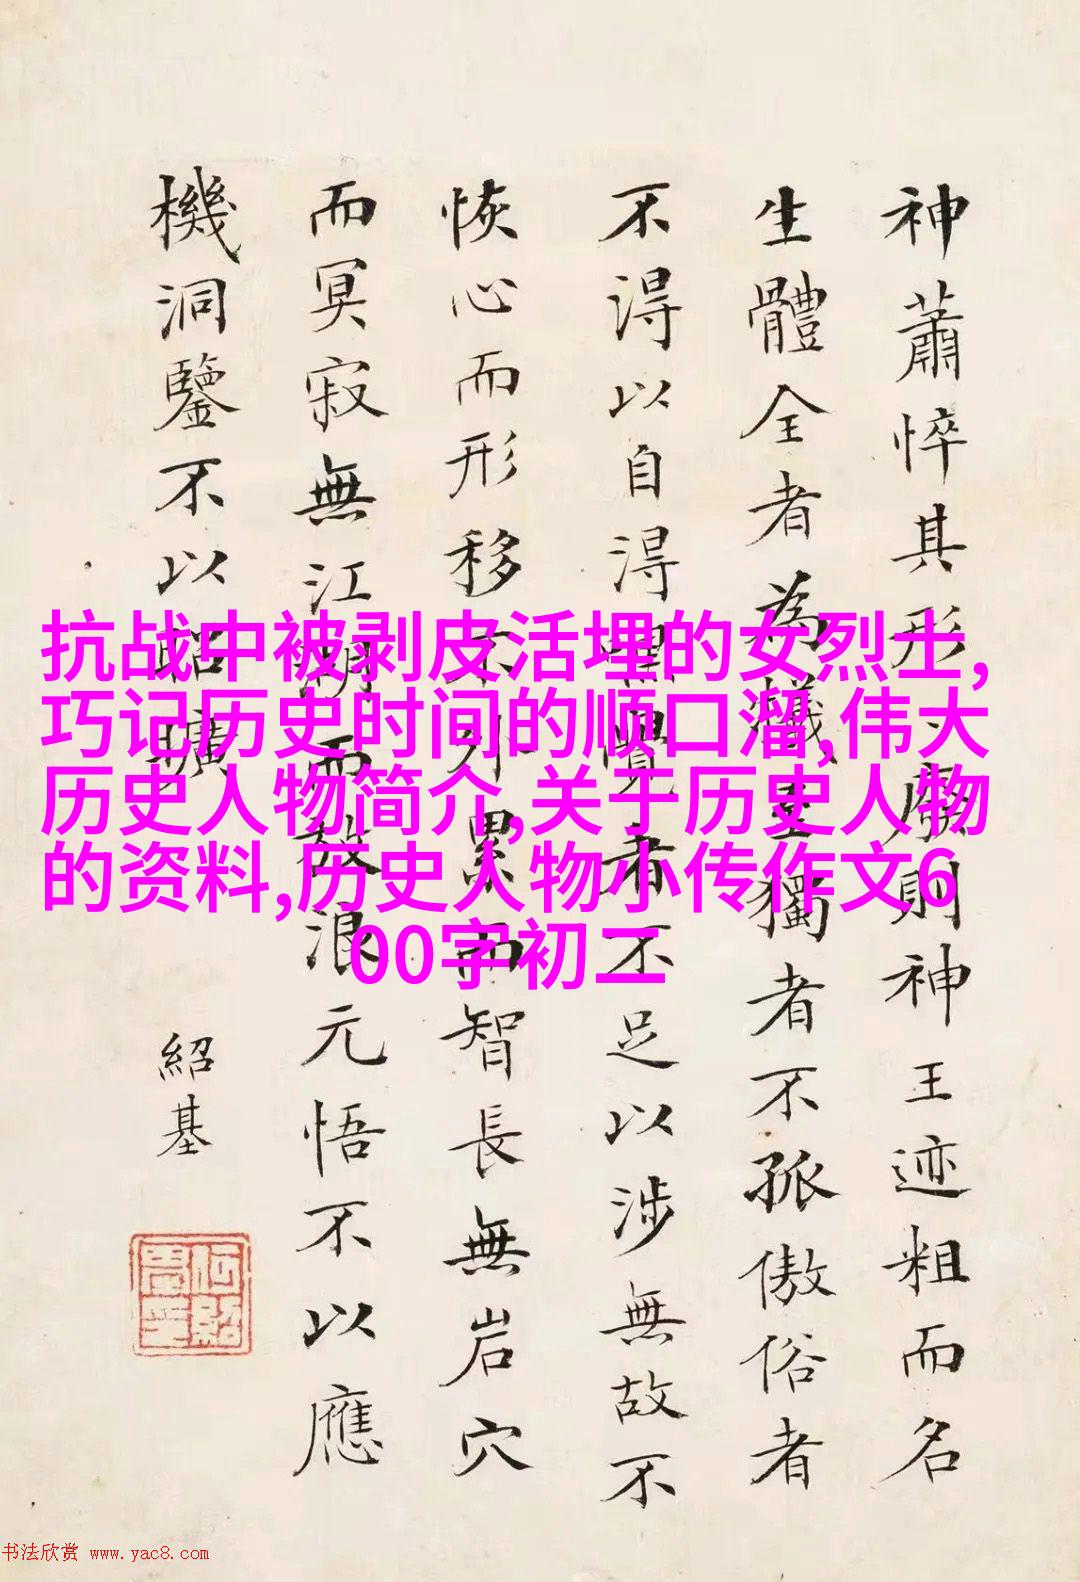 神蕭悴其形廢則神王迹粗而名
生體全者為犧獨者不孤傲俗者
不得以自得覺者不足以涉無故不
恢心而形移不外累而智長無岩穴
而冥寂無江湖而放浪元悟不以應
機洞鑒不以昭曠
紹基
抗战中被剥皮活埋的女烈士,
巧记历史时间的顺口溜,伟大
历史人物简介,关于历史人物
的资料,历史人物小传作文6
00字初二
书法欣赏 www.yac8.com